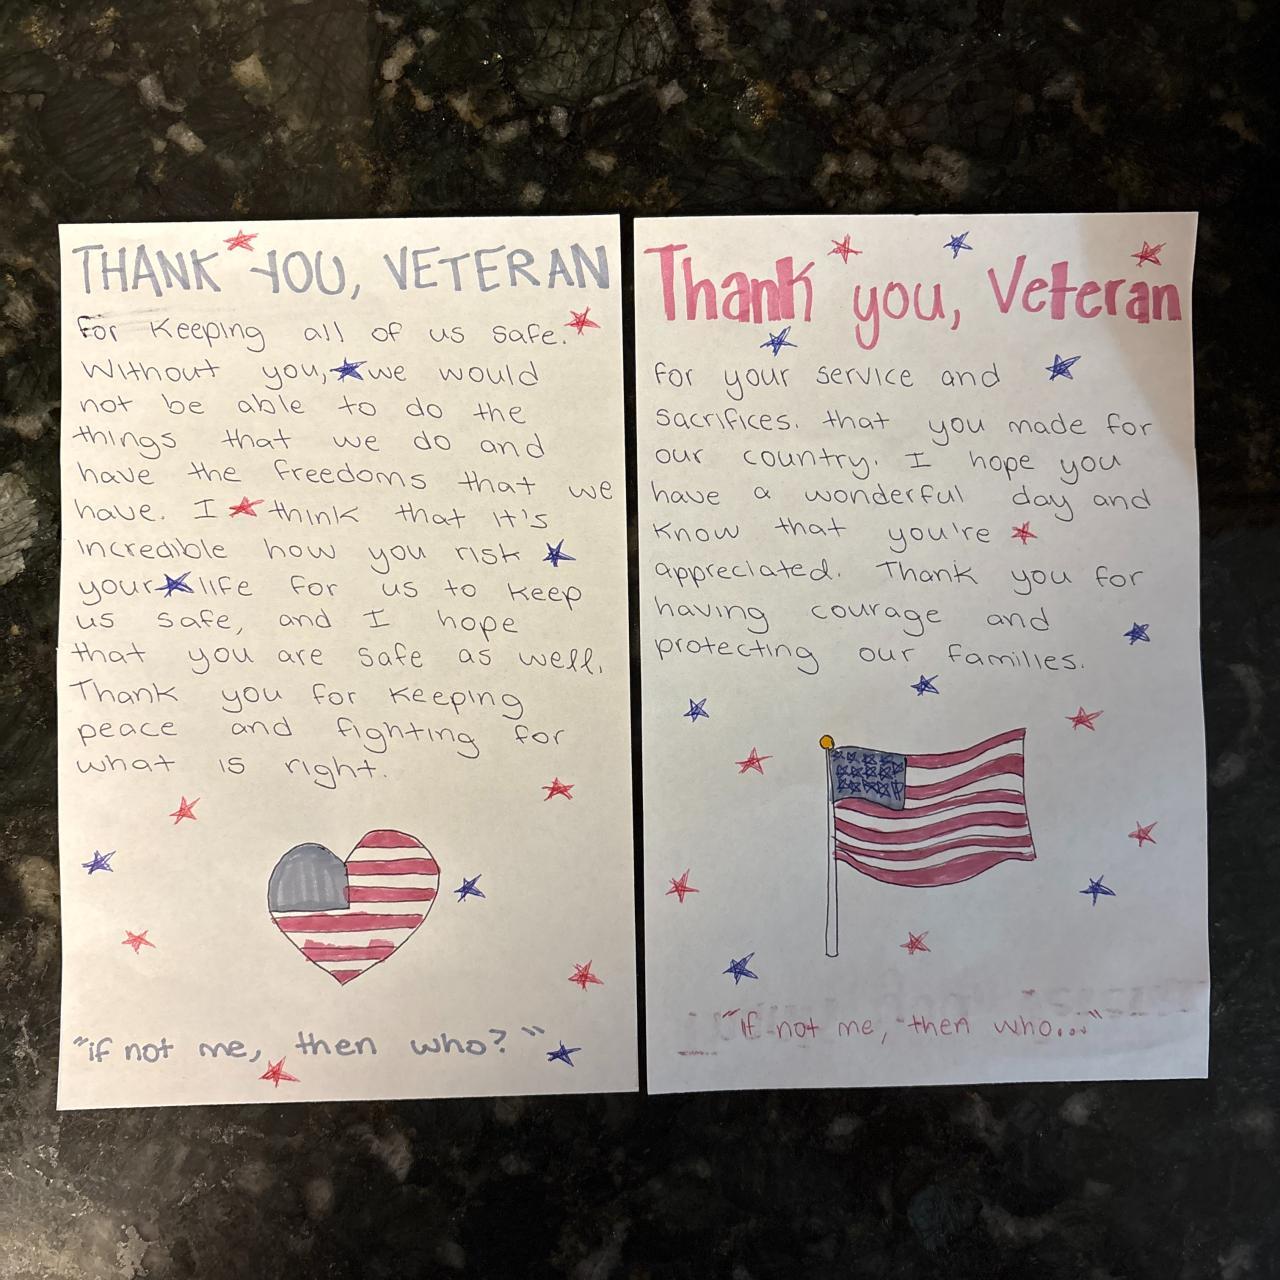 THANK YOU, VETERAN
for keeping all of us safe.
Without you, we would
not be able to do the
things that we do and
have the freedoms that we
have. I think that it's
incredible how you risk
your life for us to keep
us safe, and I hope
that you are safe as well.
Thank you for keeping
peace and fighting for
what is right.
"if not me, then who?"
Thank you, Veteran
for your service and
sacrifices. that you made for
our country. I hope you
have a wonderful day and
know that you're
appreciated. Thank you for
having courage and
protecting our families.
"If not me, then who..."